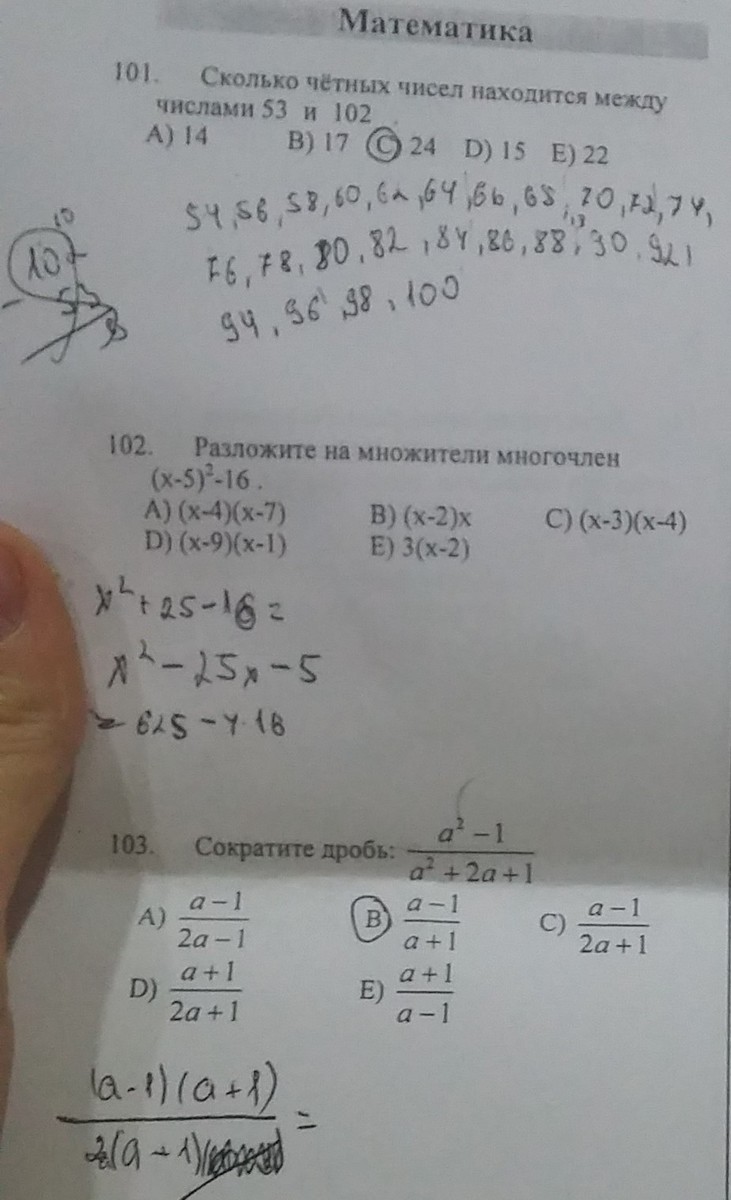 Математика
101. Сколько чётных чисел находится между
числами 53 и 102
A) 14 B) 17 C) 24 D) 15 E) 22
54, 56, 58, 60, 62, 64, 66, 68, 70, 72, 74,
76, 78, 80, 82, 84, 86, 88, 90, 92,
94, 96, 98, 100
10
102. Разложите на множители многочлен
(x-5)²-16 .
A) (x-4)(x-7) B) (x-2)x C) (x-3)(x-4)
D) (x-9)(x-1) E) 3(x-2)
x² + 25 - 16 =
x² - 25x - 5
= 625 - 4·16
103. Сократите дробь: (a² - 1)/(a² + 2a + 1)
A) (a - 1)/(2a - 1) B) (a - 1)/(a + 1) C) (a - 1)/(2a + 1)
D) (a + 1)/(2a + 1) E) (a + 1)/(a - 1)
(a - 1)(a + 1)
(a + 1) =